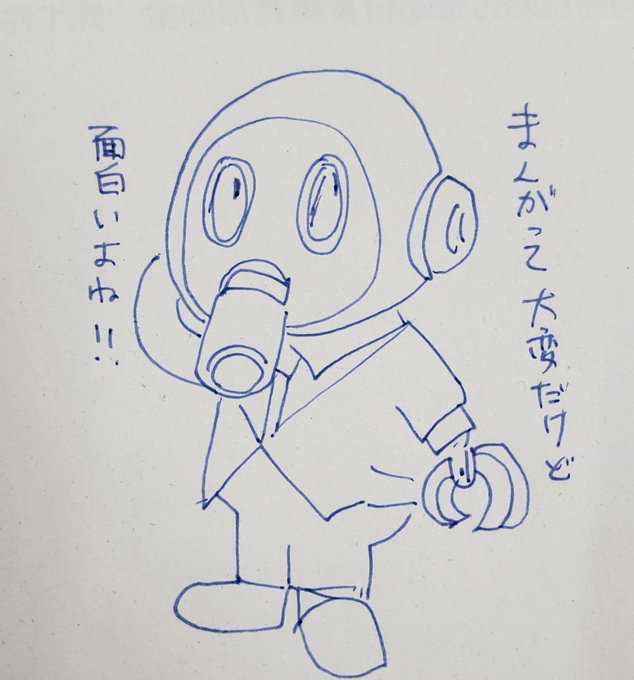 まんがって大変だけど
面白いよね!!